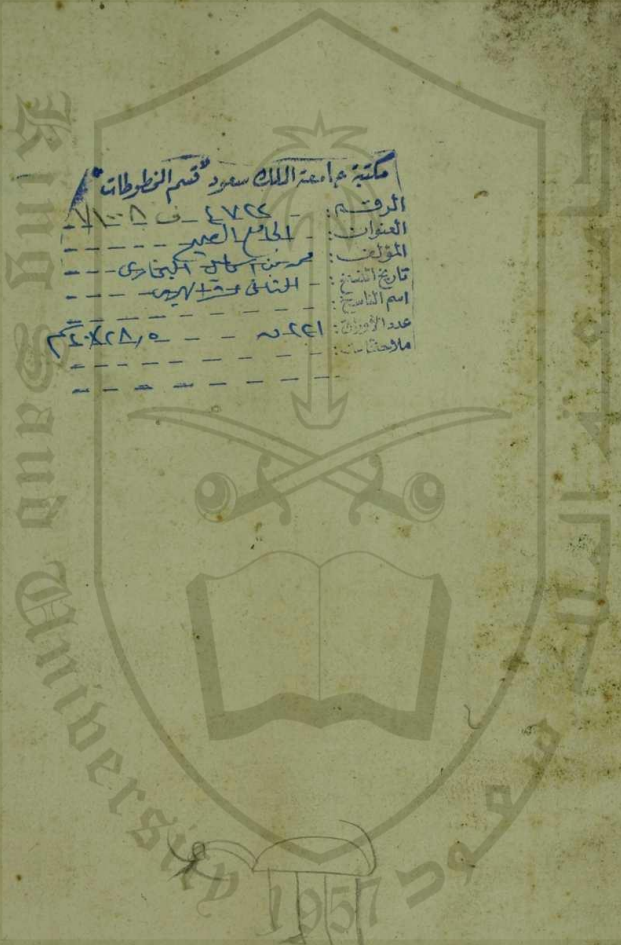 مكتبة جامعة الملك سعود "قسم المخطوطات"
الرقم: - ٤٧٢٤ - ف ٧١٠٠٨
العنوان: - الجامع الصحيح - - - -
المؤلف: محمد بن اسماعيل البخاري - - -
تاريخ النسخ: - الثاني عشر الهجري - - -
اسم الناسخ: - - - - - -
عدد الأوراق: ٢٢١ ق - - ٢٨٫٥×٢٠ سم
ملاحظات: - - - - - -
King Saud University
سعود
1957